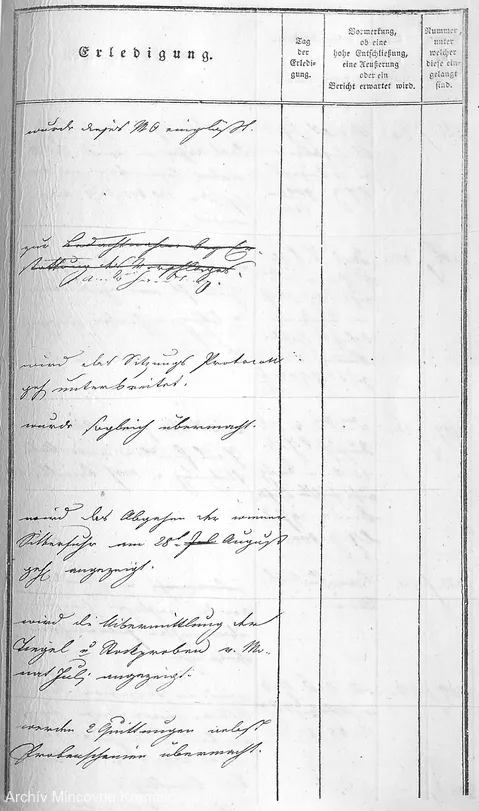 Erledigung.
Tag
der
Erledi-
gung.
Vormerkung,
ob eine
hohe Entschließung,
eine Aeußerung
oder ein
Bericht erwartet wird.
Nummer,
unter
welcher
diese ein-
gelangt
sind.
wurde dieses MO eingelöst.
zur
wird das Sitzungs Protocoll
geh. unterbreitet.
wurde sogleich übermacht.
wird das Abgehen der wiener
Silberfuhr am 28t Jul August
geh. angezeigt.
wird die Übermittlung der
Tiegel u Stockproben v. Mo-
nat July angezeigt.
werden 2 Quittungen nebst
Probenscheinen übermacht.
Archiv Mincovne Kremnica